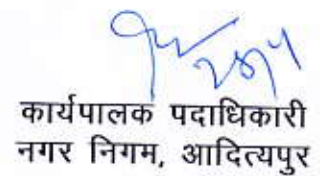 कार्यपालक पदाधिकारी
नगर निगम, आदित्यपुर